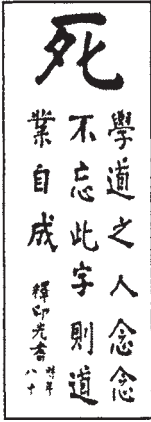 死
學道之人念念
不忘此字則道
業自成
釋印光書
時年八十